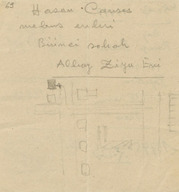 65
Hasan Çavuş
mektus evleri
Birinci sokak
Albay Ziya Evi